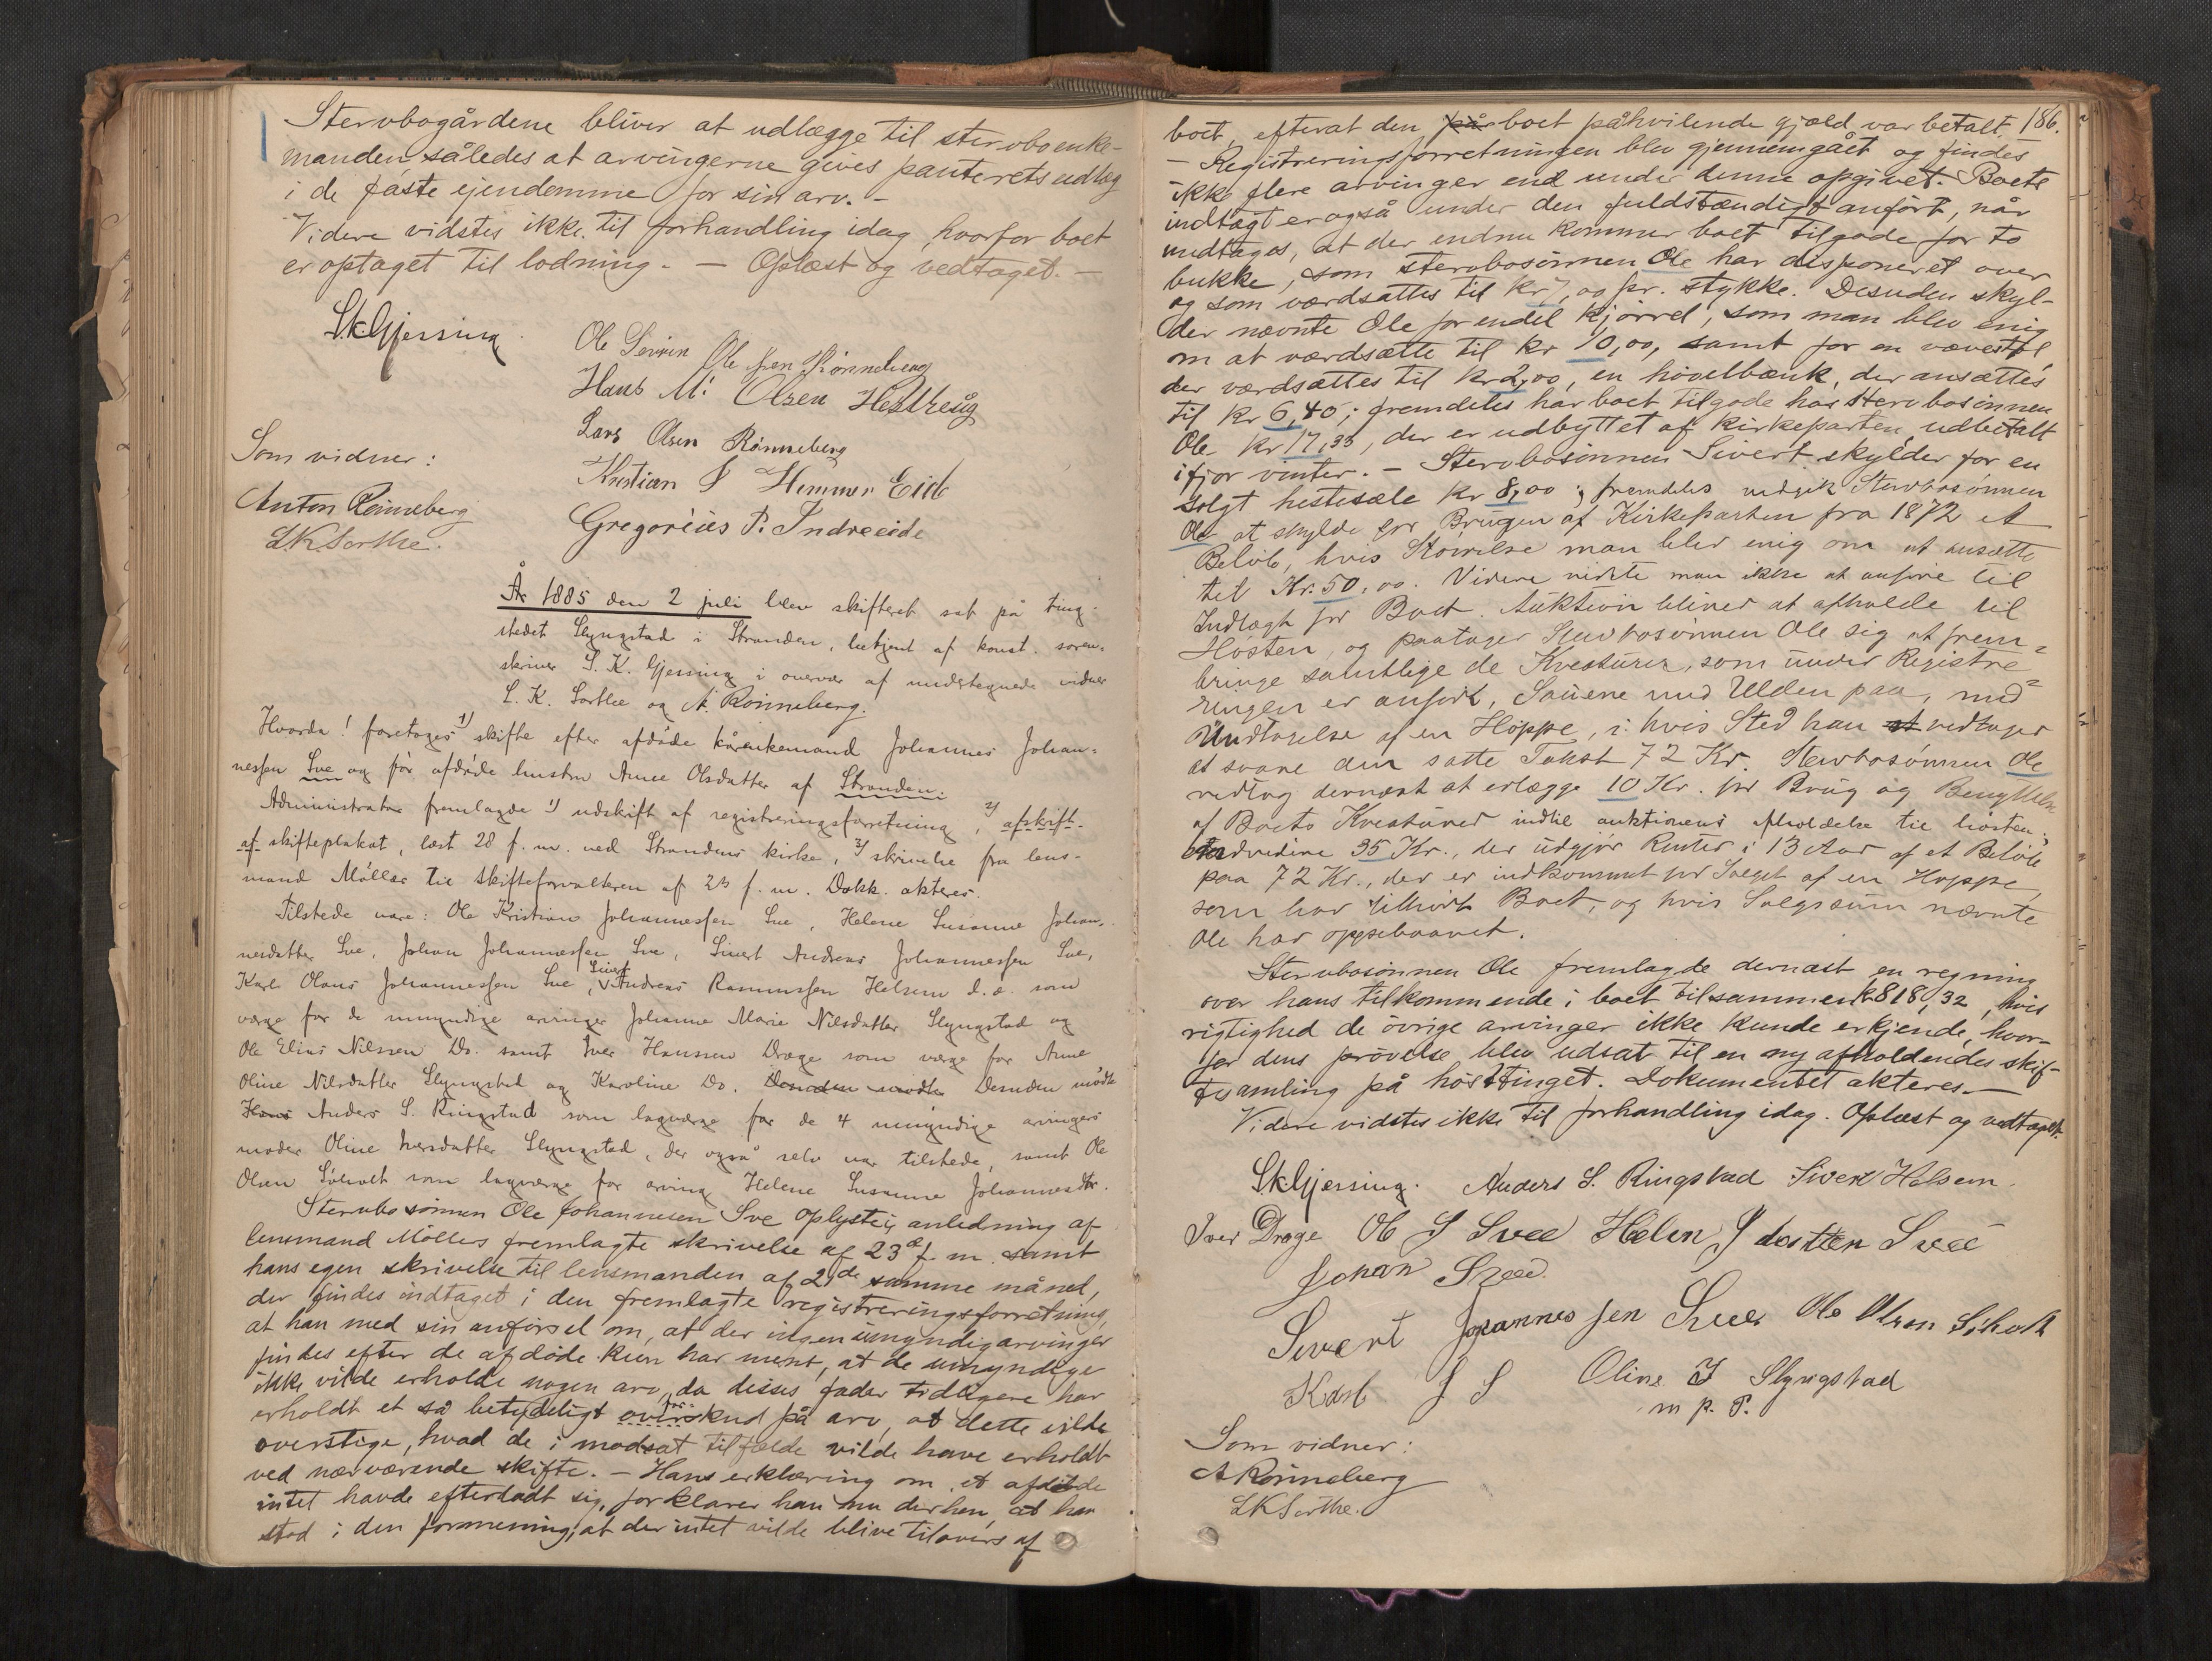 Stervbogårdene bliver at udlægge til stervboenke-
manden således at arvingerne gives panterets udlæg
i de faste ejendomme for sin arv. -
Videre vidstes ikke til forhandling idag, hvorfor boet
er optaget til lodning. - Oplæst og vedtaget. -
S.K.Gjessing.
Ole Ole Rønneberg
Hans M: Olsen
Lars Olsen Rønneberg
Som vidner:
Kristian Eide
Anton Rønneberg
Gregorius P. Indreeide
LKSorthe.
År 1885 den 2 juli blev skifteret sat på ting-
stedet Slyngstad i Stranden, betjent af konst. soren-
skriver S. K. Gjessing i overvær af undertegnede vidner
L. K. Sorthe og A. Rønneberg.
Hvorda! foretoges 1) skifte efter afdøde kårenkemand Johannes Johan-
nessen Sve og før afdøde hustru Anne Olsdatter af Stranden.
Administrator fremlagde 1) udskrift af registreringsforretning, 2) afskrift
af skifteplakat, læst 28 f. m. ved Strandens kirke, 3) skrivelse fra lens-
mand Möller til skifteforvalteren af 23 f. m. Dokk. akteres.
Tilstede vare: Ole Kristian Johannessen Sve, Helene Susanne Johan-
nesdatter Sve, Johan Johannessen Sve, Sivert Andreas Johannessen Sve,
Karl Olaus Johannessen Sve, Sivert Andreas Rasmussen Helsem d. æ. som
værge for de umyndige arvinger Johanne Marie Nilsdatter Slyngstad og
Ole Elias Nilssen Do. samt Iver Hanssen Drage som værge for Anne
Oline Nilsdatter Slyngstad og Karoline Do. Desuden mødte Desuden mødte
Hans Anders S. Ringstad som lagværge for de 4 umyndige arvingers
moder Oline Iversdatter Slyngstad, der også selv var tilstede, samt Ole
Olsen Søholt som lagværge for arving Helene Susanne Johannesdtr.
Stervbosønnen Ole Johannesen Sve oplyste i anledning af
lensmand Möllers fremlagte skrivelse af 23de f. m. samt
hans egen skrivelse til lensmanden af 21de samme måned,
der findes indtaget i den fremlagte registreringsforretning,
at han med sin anførsel om, at der ingen umyndig arvinger
findes efter de afdøde kun har ment, at de umyndige
ikke vilde erholde nogen arv, da disses fader tidligere har
erholdt et så betydeligt overskud på arv, at dette vilde
overstige, hvad de i modsat tilfælde vilde have erholdt
ved nærværende skifte. - Hans erklæring om, at afdøde
intet havde efterladt sig, forklarer han nu derhen, at han
stod i den formening, at der intet vilde blive tilovers af
186.
boet, efterat den på boet påhvilende gjæld var betalt.
- Registreringsforretningen blev gjennemgået og findes
ikke flere arvinger end under denne opgivet. Boets
indtægt er også under den fuldstændigt anført, når
undtages, at der endnu kommer boet tilgode for to
bukke, som stervbosønnen Ole har disponeret over
og som værdsattes til kr 7,00 pr. stykke. Desuden skyl-
der nævnte Ole for endel kjørrel, som man blev enig
om at værdsætte til kr 10,00, samt for en vævestol,
der værdsættes til kr 2,00, en høvelbænk, der ansættes
til kr 6,40; fremdeles har boet tilgode hos stervbosønnen
Ole kr 17,33, der er udbyttet af kirkeparten, udbetalt
ifjor vinter. - Stervbosønnen Sivert skylder for en
solgt hestesæle kr 8,00; fremdeles vedgik Stervbosønnen
Ole at skylde for Brugen af Kirkeparten fra 1872 et
Beløb, hvis Størrelse man blev enig om at ansætte
til Kr. 50,00. Videre vidste man ikke at anføre til
Indtægt for Boet. Auktion bliver at afholde til
Høsten, og paatager Stervbosønnen Ole sig at frem-
bringe samtlige de Kreaturer, som under Registre-
ringen er anført, Sauene med Ulden paa, med
Undtagelse af en Hoppe, i hvis Sted han at vedtager
at svare den satte Takst 72 Kr. Stervbosønnen Ole
vedtog dernæst at erlægge 10 Kr. for Brug og Benyttelse
af Boets Kreaturer indtil auktionens afholdelse til høsten;
endvidere 35 Kr., der udgjør Renter i 13 Aar af et Beløb
paa 72 Kr., der er indkommet for Salget af en Hoppe,
som har tilhørt Boet, og hvis Salgssum nævnte
Ole har oppebaaret.
Stervbosønnen Ole fremlagde dernæst en regning
over hans tilkommende i boet tilsammen k 818,32, hvis
rigtighed de øvrige arvinger ikke kunde erkjende, hvor-
for dens prøvelse blev udsat til en ny afholdendes skif-
tesamling på høsttinget. Dokumentet akteres. -
Videre vidstes ikke til forhandling idag. Oplæst og vedtaget.
SKGjessing. Anders S. Ringstad Siver Helsem.
Iver Drage Ole J Svee Helen J dostten Svee
Johan Svee.
Sivert Johannessen Svee Ole Olsen Siholt
Karl J S Oline I Slyngstad
m. p. P.
Som vidner:
A Rønneberg
LKSorthe.